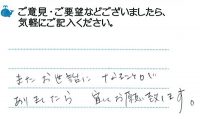 ご意見・ご要望などございましたら、
気軽にご記入ください。
またお世話に なることが
ありましたら 宜しくお願い致します。